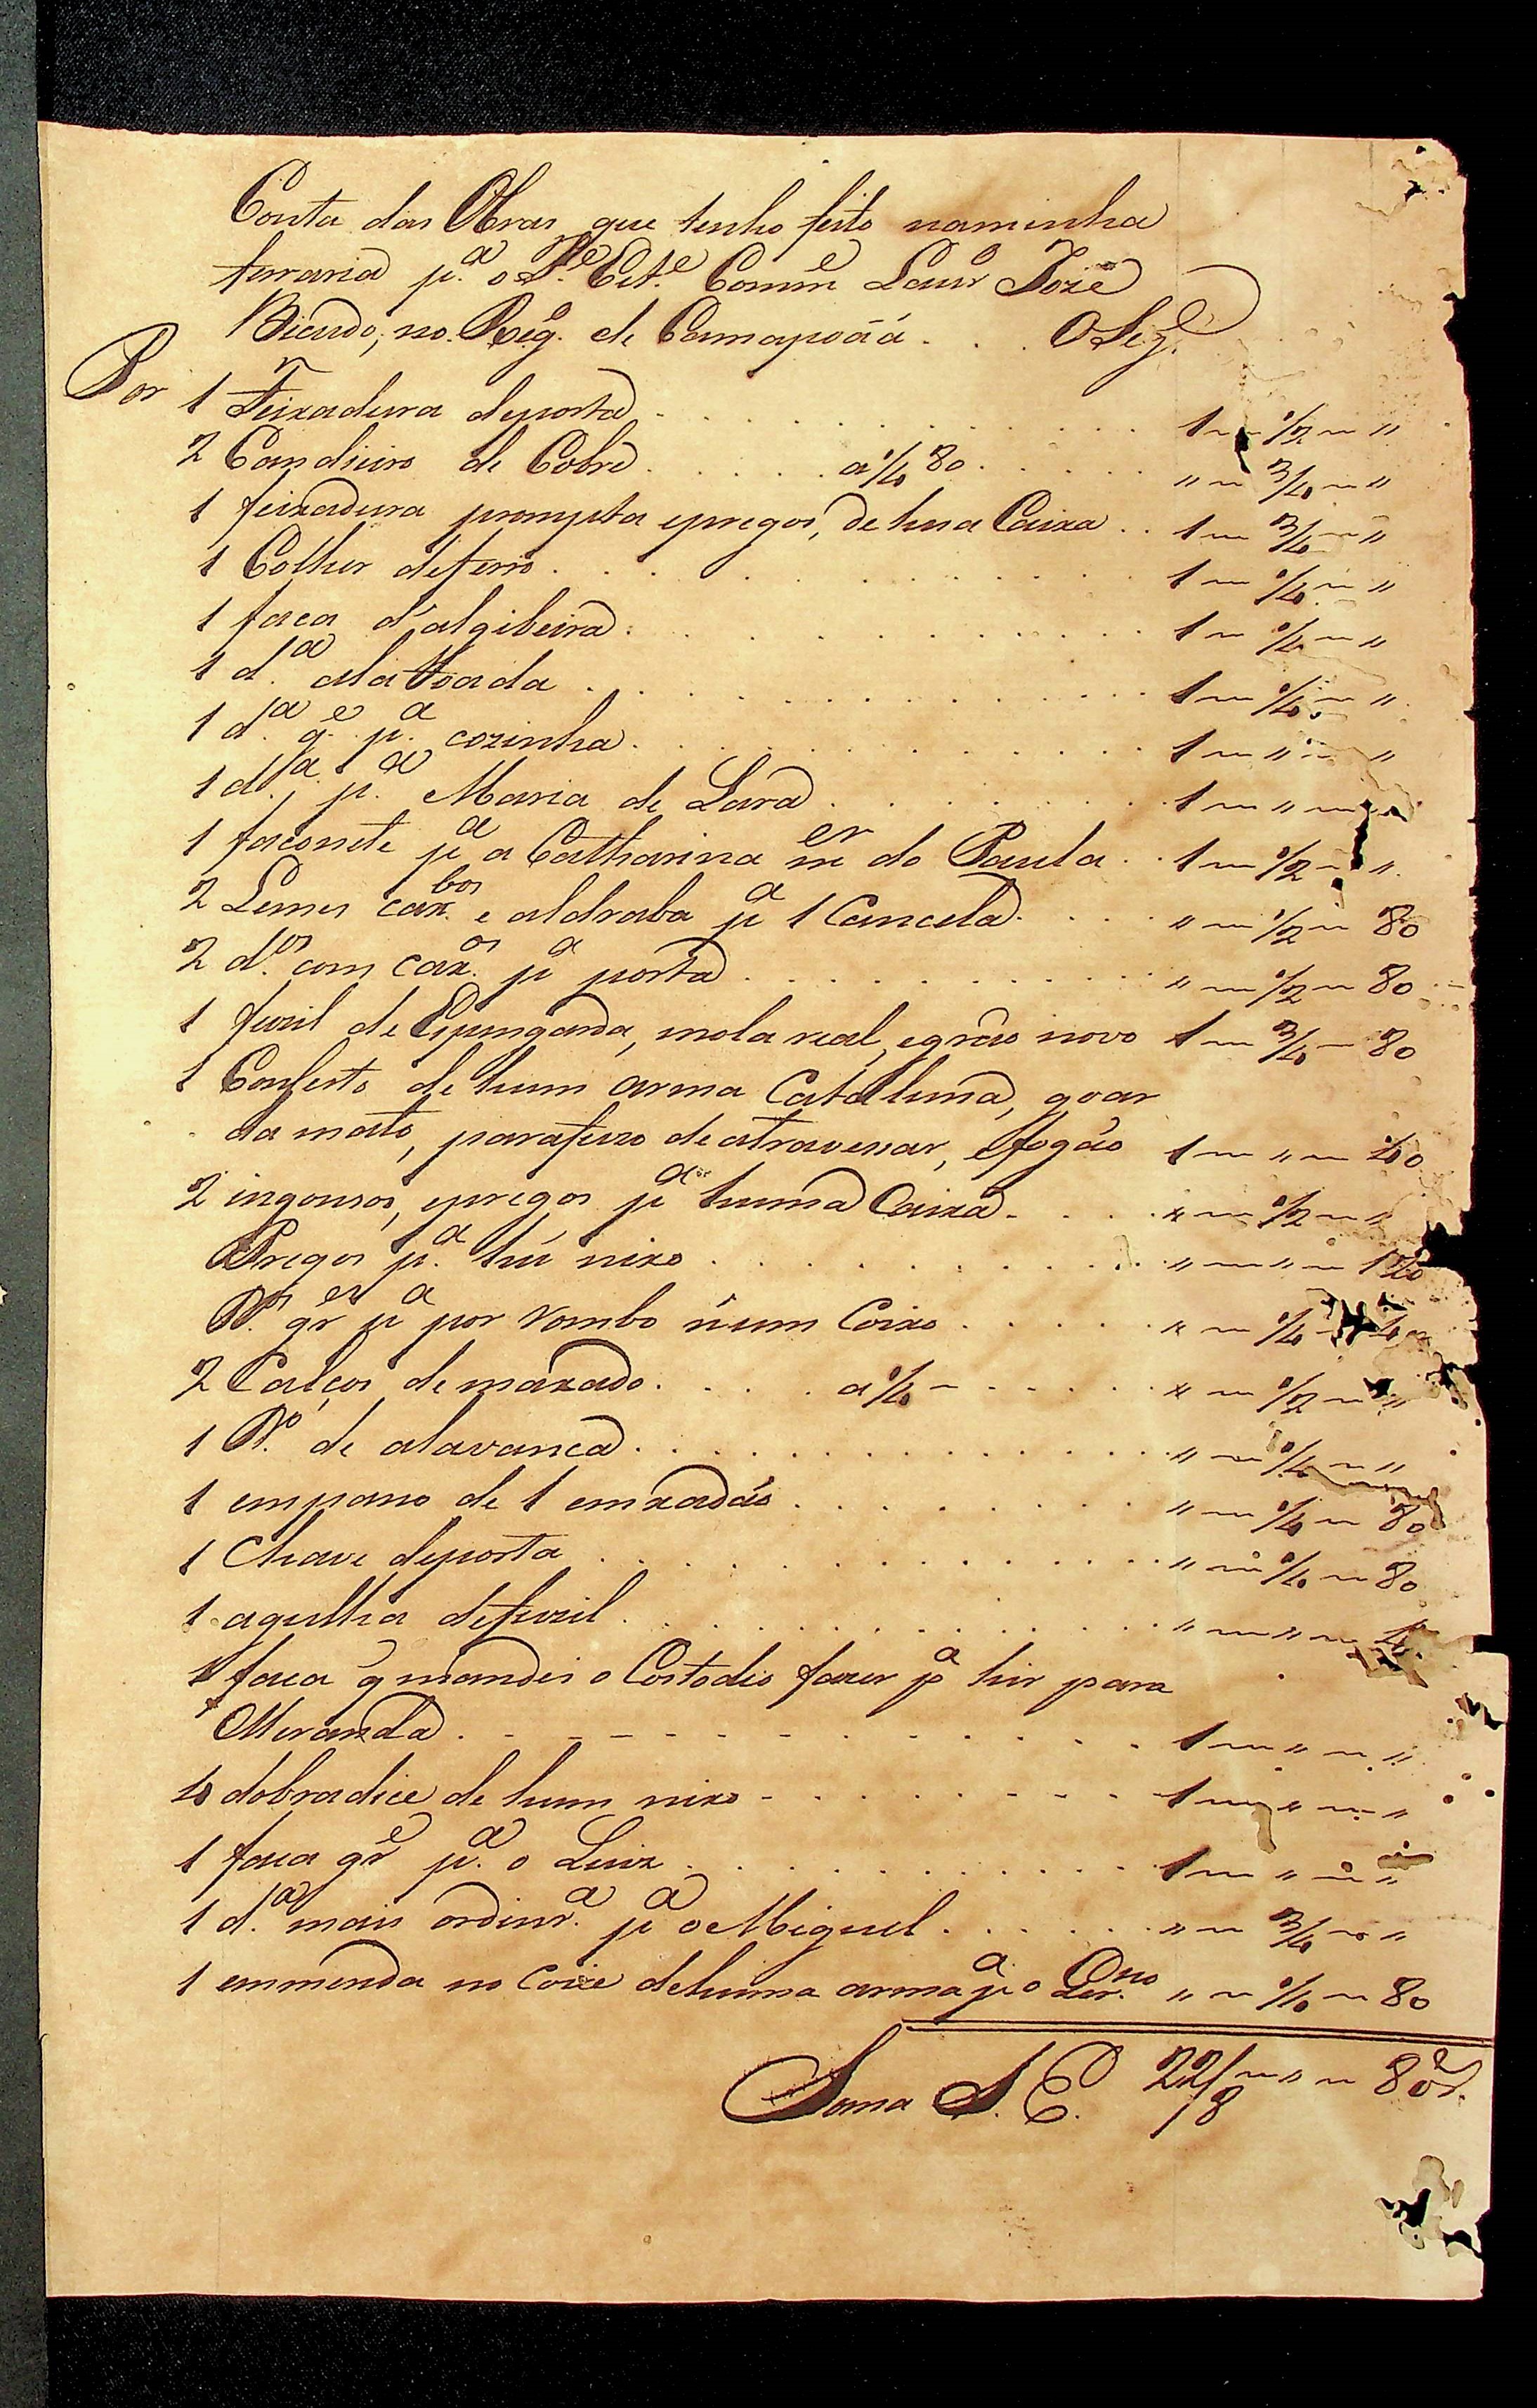 Conta das Obras que tenho feito naminha
ferraria p.ª o Comm.e Lour.o Jozé
Bicudo, no Reg.o de Camapoãa . . . O Seg.e
Por 1 Feixadura deporta . . . 1 — 1/2 — "
2 Candieiro de Cobre . . . a 1/4 80 . . . " — 3/4 — "
1 feixadura prompta epregos, de hua Caixa . . 1 — 3/4 — "
1 Colher deferro . . . 1 — 1/4 — "
1 faca d'algibeira . . . 1 — 1/4 — "
1 d.ª alatoada . . . 1 — 1/4 — "
1 d.ª g.e p.ª cozinha . . . 1 — " — "
1 d.ª p.ª Maria de Lara . . . 1 — " — "
1 faconete p.ª a Catharina m.er do Paula . . 1 — 1/2 — "
2 Lemes cax.bos e aldraba p.ª 1 Cancela . . . " — 1/2 — 80
2 d.os com cax.os p.ª porta . . . " — 1/2 — 80
1 fuzil de Espingarda, mola real, egrão novo 1 — 3/4 — 80
1 Conserto de hum arma Catalluna, goar
da mato, parafuzo de atravessar, efogão 1 — " — 40
2 ingonsos, epregos p.ª huma Caixa . . . " — 1/2 — "
Pregos p.ª hú nixo . . . " — " — 140
D.os g.es p.ª por rombo n'um Coixo . . . " — 1/4 — 40
2 Calços demaxado . . . a 1/4 — . . . " — 1/2 — "
1 D.o de alavanca . . . " — 1/4 — "
1 empano de 1 emxadão . . . " — 1/4 — 80
1 Chave deporta . . . " — 1/4 — 80
1 agulha defuzil . . . " — " —
1 faca q mandei o Costodio fazer p.ª hir para
Miranda . . . 1 — " — "
4 dobradice de hum nixo . . . 1 — " — "
1 faca g.e p.ª o Luiz . . . 1 — " — "
1 d.ª mais ordinr.ª p.ª o Miguel . . . " — 3/4 — "
1 emmenda no Coice dehuma arma p.ª o " — 1/4 — 80
Soma S. E. 22/8 — " — 80r.s